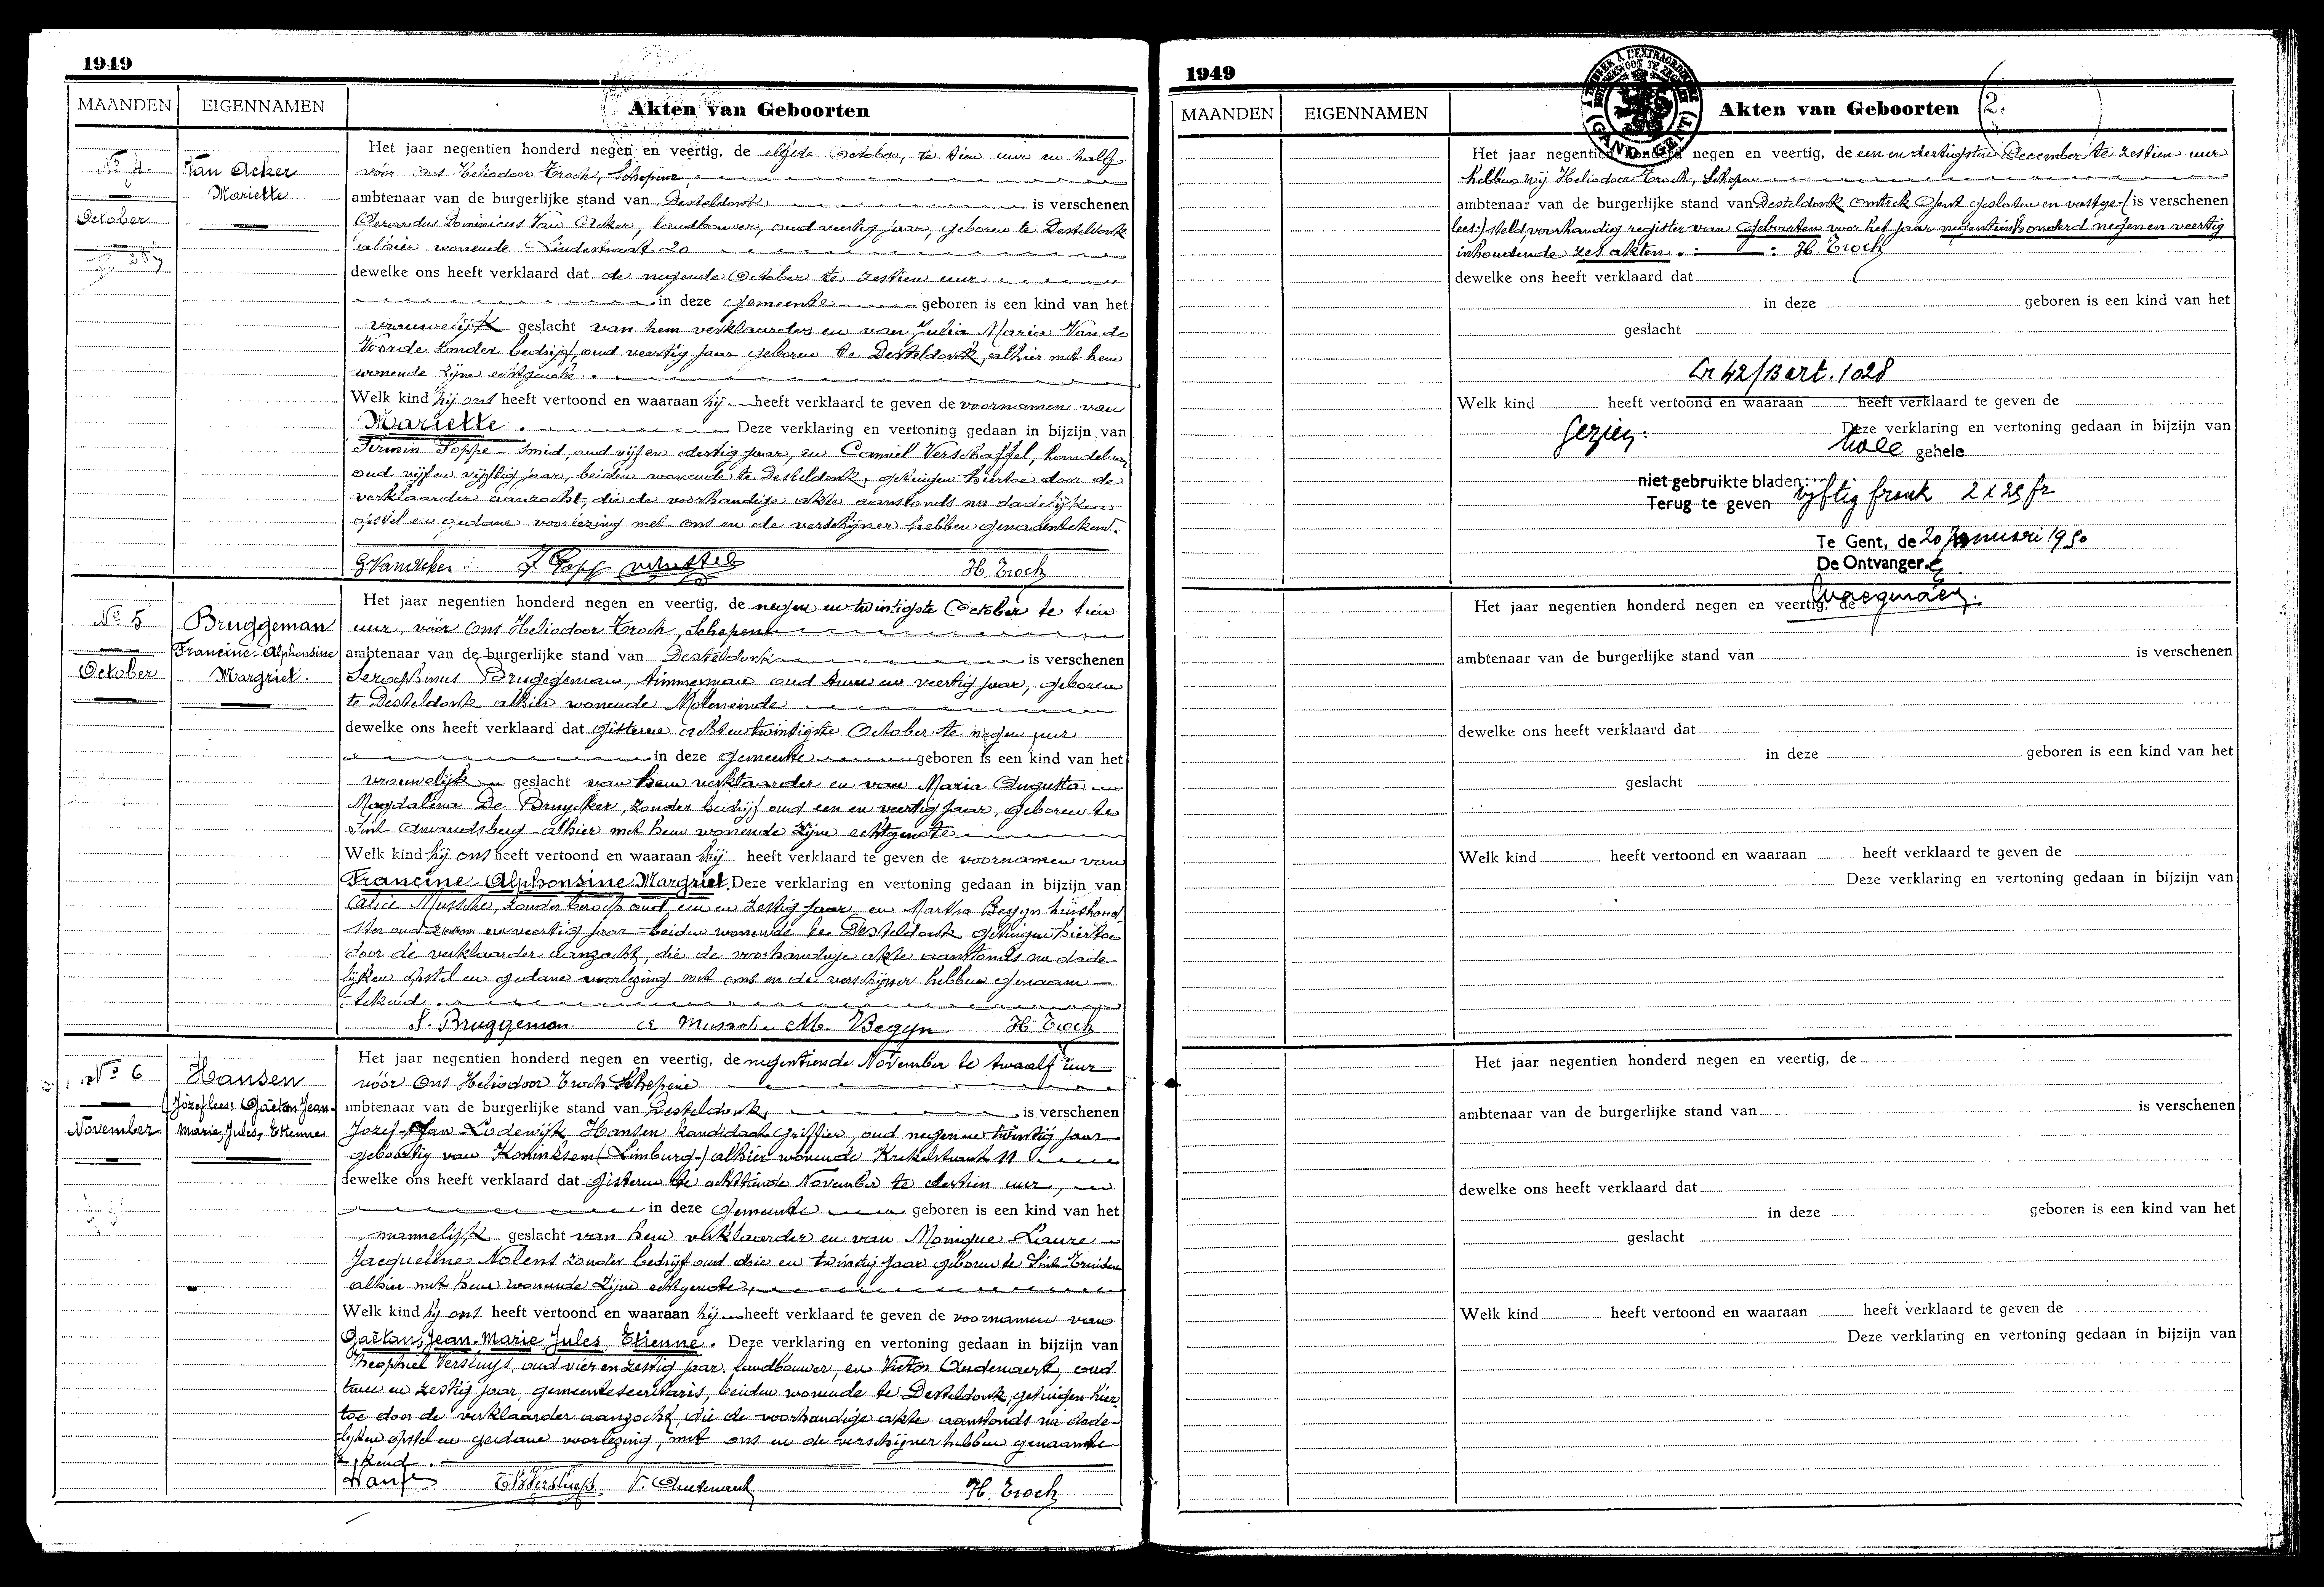 1949
MAANDEN EIGENNAMEN Akten van Geboorten
No 4.
October
Van Acker
Mariette
Het jaar negentien honderd negen en veertig, de elfde October, te tien uur en half
vóór ons Heliodoor Troch, Schepene
ambtenaar van de burgerlijke stand van Desteldonk is verschenen
Gerardus Dominicus Van Acker, landbouwer, oud veertig jaar, geboren te Desteldonk
alhier wonende Lindestraat 20
dewelke ons heeft verklaard dat de negende October te zestien uur
in deze Gemeente geboren is een kind van het
vrouwelijk geslacht van hem verklaarder en van Julia Maria Van de
Voorde zonder bedrijf, oud veertig jaar geboren te Desteldonk, alhier met hem
wonende zijne echtgenote.
Welk kind hij ons heeft vertoond en waaraan hij heeft verklaard te geven de voornamen van
Mariette. Deze verklaring en vertoning gedaan in bijzijn van
Firmin Poppe smid, oud vijf en dertig jaar, en Camiel Verschaffel, handelaar
oud vijf en vijftig jaar, beiden wonende te Desteldonk, getuigen hiertoe door de
verklaarder aanzocht, die de voorhandige akte aanstonds na dadelijken
opstel en gedane voorlezing met ons en de verschijner hebben genaamtekend.
G. VanAcker F. Popp H. Troch
No 5
October
Bruggeman
Francine-Alphonsine
Margriet.
Het jaar negentien honderd negen en veertig, de negen en twintigste October te tien
uur, vóór Ons Heliodoor Troch, Schepene
ambtenaar van de burgerlijke stand van Desteldonk is verschenen
Seraphinus Bruggeman, timmerman oud twee en veertig jaar, geboren
te Desteldonk alhier wonende Moleneinde
dewelke ons heeft verklaard dat gisteren achtentwintigste October te negen uur
in deze Gemeente geboren is een kind van het
vrouwelijk geslacht van hem verklaarder en van Maria Augusta
Magdalena De Bruycker, zonder bedrijf oud een en veertig jaar, geboren te
Sint Amandsberg alhier met hem wonende zijne echtgenote
Welk kind hij ons heeft vertoond en waaraan hij heeft verklaard te geven de voornamen van
Francine-Alphonsine-Margriet. Deze verklaring en vertoning gedaan in bijzijn van
Musschе, zonder beroep oud een en zestig jaar en Martha Begyn huishoud-
ster oud zeven en veertig jaar beiden wonende te Desteldonk getuigen hiertoe
door de verklaarder aanzocht, die de voorhandige akte aanstonds na dade-
lijken opstel en gedane voorlezing met ons en de verschijner hebben genaam-
tekend.
S. Bruggeman M. Begyn H. Troch
No 6
November
Hansen
(Jozef lees: Gaëtan Jean-
Marie, Jules, Etienne
Het jaar negentien honderd negen en veertig, de negentiende November te twaalf uur
vóór Ons Heliodoor Troch Schepene
ambtenaar van de burgerlijke stand van Desteldonk, is verschenen
Jozef-Jan Lodewijk Hansen kandidaat Griffier, oud negen en twintig jaar
geboortig van Koninksem (Limburg) alhier wonende 11
dewelke ons heeft verklaard dat gisteren de achttiende November te dertien uur,
in deze Gemeente geboren is een kind van het
mannelijk geslacht van hem verklaarder en van Monique Laure
Jacqueline Nolens zonder bedrijf oud drie en twintig jaar geboren te Sint-Truiden
alhier met hem wonende zijne echtgenote,
Welk kind hij ons heeft vertoond en waaraan hij heeft verklaard te geven de voornamen van
Gaëtan, Jean-Marie, Jules, Etienne. Deze verklaring en vertoning gedaan in bijzijn van
Theophiel Versluys, oud vier en zestig jaar, landbouwer, en Victor Oudenaert, oud
twee en zestig jaar, gemeentesecretaris, beiden wonende te Desteldonk, getuigen hier-
toe door de verklaarder aanzocht, die de voorhandige akte aanstonds na dade-
lijken opstel en gedane voorlezing, met ons en de verschijner hebben genaamte-
kend.
Hansen Th. Versluys V. Oudenaert H. Troch
1949
GAND GENT
2.
MAANDEN EIGENNAMEN Akten van Geboorten
Het jaar negentien honderd negen en veertig, de een en dertigsten December te zestien uur
hebben wij Heliodoor Troch, Schepen
ambtenaar van de burgerlijke stand van Desteldonk omtrek Gent gesloten en vastge- (is verschenen
lees:) steld voorhandig register van Geboorten voor het jaar negentienhonderd negen en veertig
inhoudende zes akten. H. Troch
dewelke ons heeft verklaard dat
in deze geboren is een kind van het
geslacht
42/B art. 1028
Welk kind heeft vertoond en waaraan heeft verklaard te geven de
Deze verklaring en vertoning gedaan in bijzijn van
Gezien: twee gehele
niet gebruikte bladen:
Terug te geven vijftig frank 2 x 25 fr
Te Gent, de 20 Januari 1950
De Ontvanger.
Het jaar negentien honderd negen en veertig, de
ambtenaar van de burgerlijke stand van is verschenen
dewelke ons heeft verklaard dat
in deze geboren is een kind van het
geslacht
Welk kind heeft vertoond en waaraan heeft verklaard te geven de
Deze verklaring en vertoning gedaan in bijzijn van
Het jaar negentien honderd negen en veertig, de
ambtenaar van de burgerlijke stand van is verschenen
dewelke ons heeft verklaard dat
in deze geboren is een kind van het
geslacht
Welk kind heeft vertoond en waaraan heeft verklaard te geven de
Deze verklaring en vertoning gedaan in bijzijn van